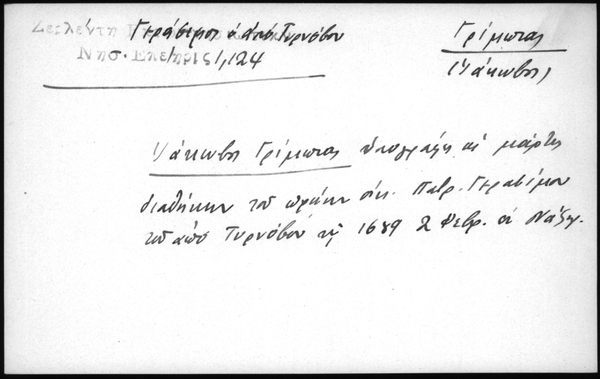 Ζερλέντη Γεράσιμος ὁ ἀπό Τυρνόβου
Νησ. Επετηρίς 1,124
Γρίμπιας
(Ἰάκωβος)
Ἰάκωβος Γρίμπιας ὑπογράφει ὡς μάρτυς
διαθήκην τοῦ πρώην οἰκ. Πατρ. Γερασίμου
τοῦ ἀπό Τυρνόβου τῇ 1689 2 Φεβρ. ἐν Νάξῳ.